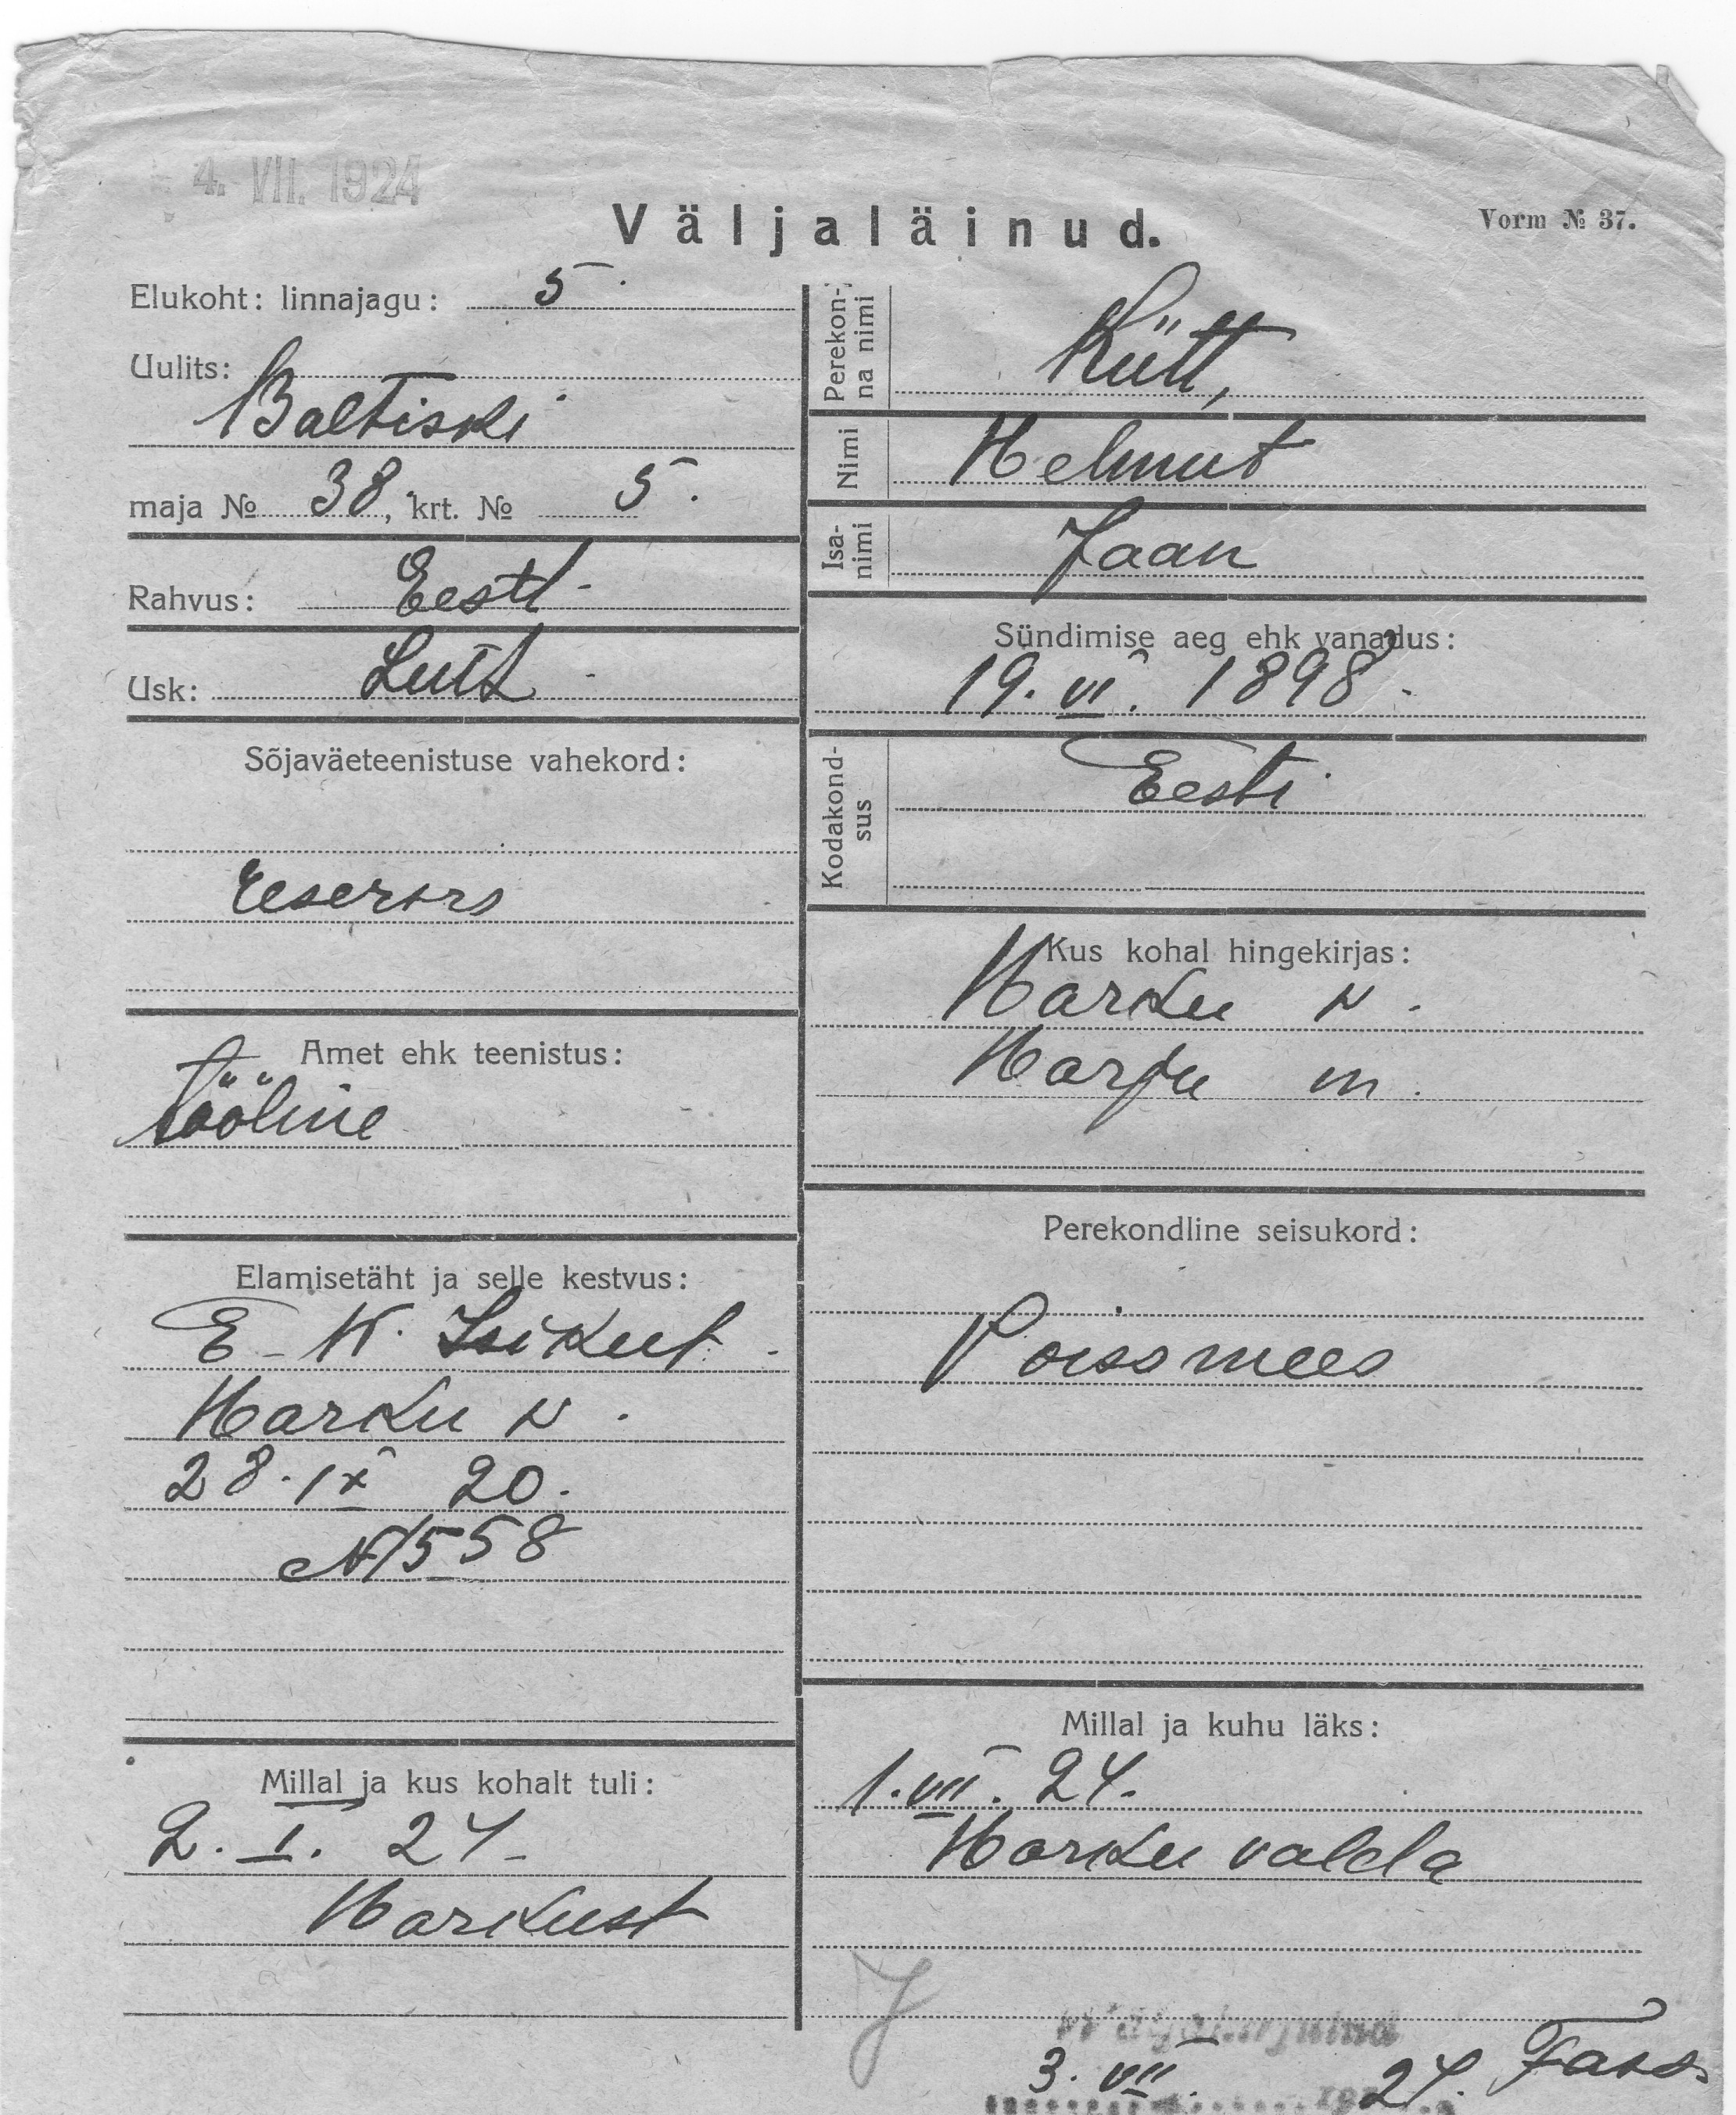 4. VII. 1924
Väljaläinud.
Vorm № 37.
Elukoht: linnajagu: 5.
Uulits:
Baltiski
maja № 38, krt. № 5.
Rahvus: Eesti
Usk: Lutt
Sõjaväeteenistuse vahekord:
reservis
Amet ehk teenistus:
tööline
Elamisetäht ja selle kestvus:
E-W. Isikut.
Harku v.
28. IX 20.
N 1558
Millal ja kus kohalt tuli:
2. I. 24
Harkust
Perekon-
na nimi
Kütt,
Nimi Helmut
Isa-
nimi
Jaan
Sündimise aeg ehk vanadus:
19. VI. 1898.
Kodakond-
sus
Eesti
Kus kohal hingekirjas:
Harku v.
Harju m.
Perekondline seisukord:
Poissmees
Millal ja kuhu läks:
1. VII. 24.
Harku valda
J
3. VII. 24.